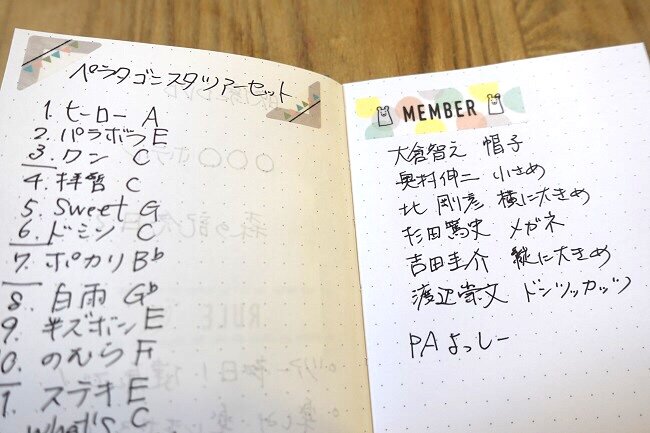 ペンタゴンスタツアーセット
1. ヒーロー A
2. パラボラ E
3. ワン C
4. 拝啓 C
5. Sweet G
6. ドミソ C
7. ポカリ B♭
8. 白雨 G♭
9. 半ズボン E
10. のむら F
1. スラキ E
What's C
MEMBER
大倉智之 帽子
奥村伸二 小さめ
北 剛彦 横に大きめ
杉田篤史 メガネ
吉田圭介 縦に大きめ
渡辺崇文 ドンツッカッツ
PA よっしー